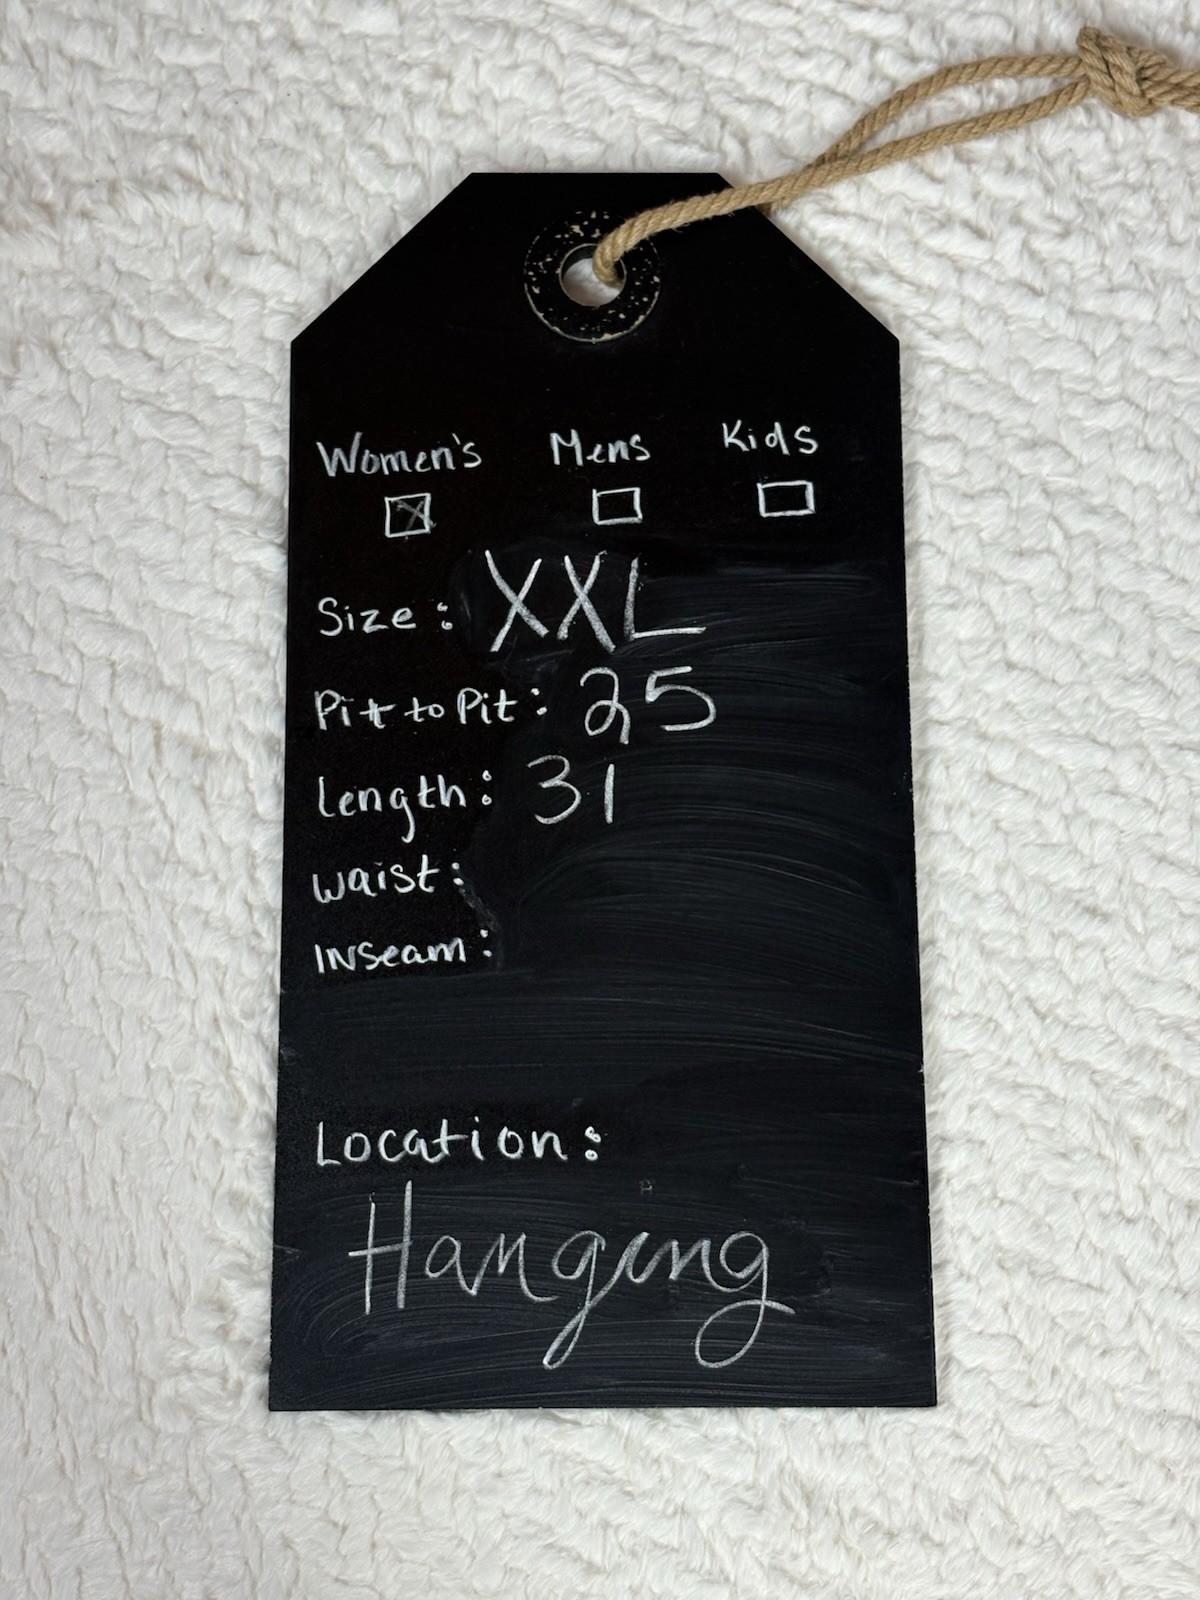 Women's Mens Kids
Size: XXL
Pit to Pit: 25
Length: 31
waist:
Inseam:
Location:
Hanging